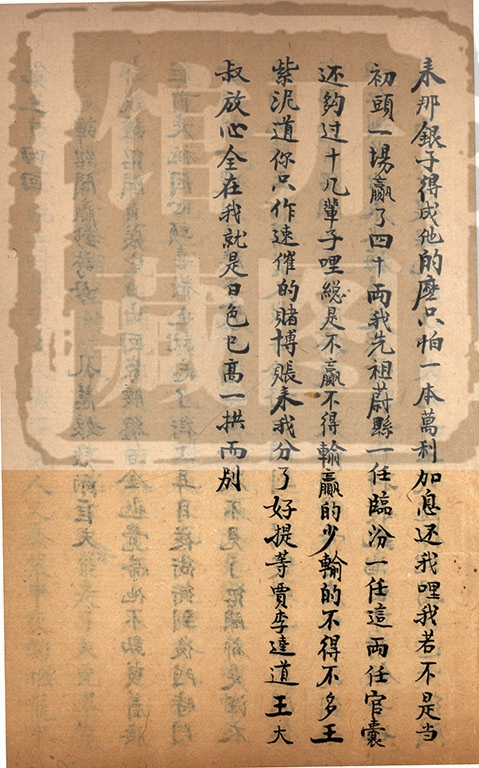 来那銀子得成他的麽只怕一本萬利加息还我哩我若不是当
初頭一場贏了四十両我先祖蔚縣一任臨汾一任這両任官囊
还夠过十几輩子哩総是不贏不得輸贏的少輸的不得不多王
紫泥道你只作速催的賭博賬来我分了好提等賈李達道王大
叔放心全在我就是日色已髙一拱而别